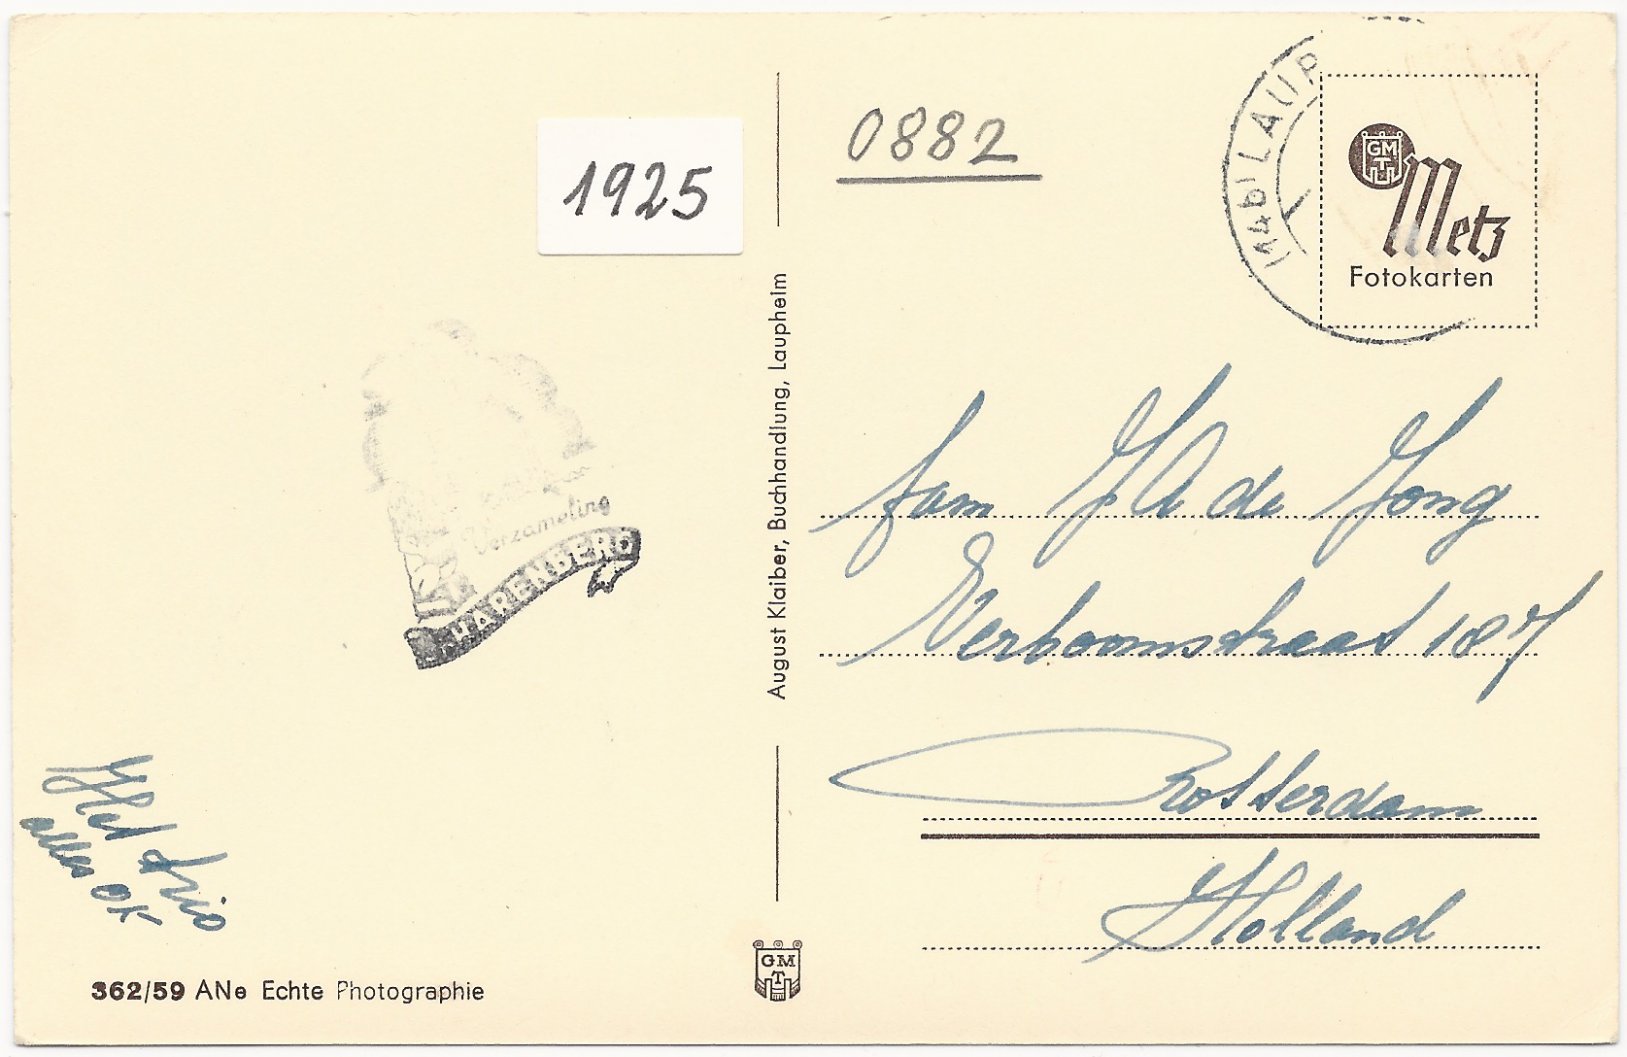 1925
0882
(14b) LAUP
GMT
Metz
Fotokarten
August Klaiber, Buchhandlung, Laupheim
Verzameling
HARENBERG
fam J A de Jong
Verboomstraat 187
Rotterdam
Holland
Het trio
alles OK
GMT
362/59 ANe Echte Photographie